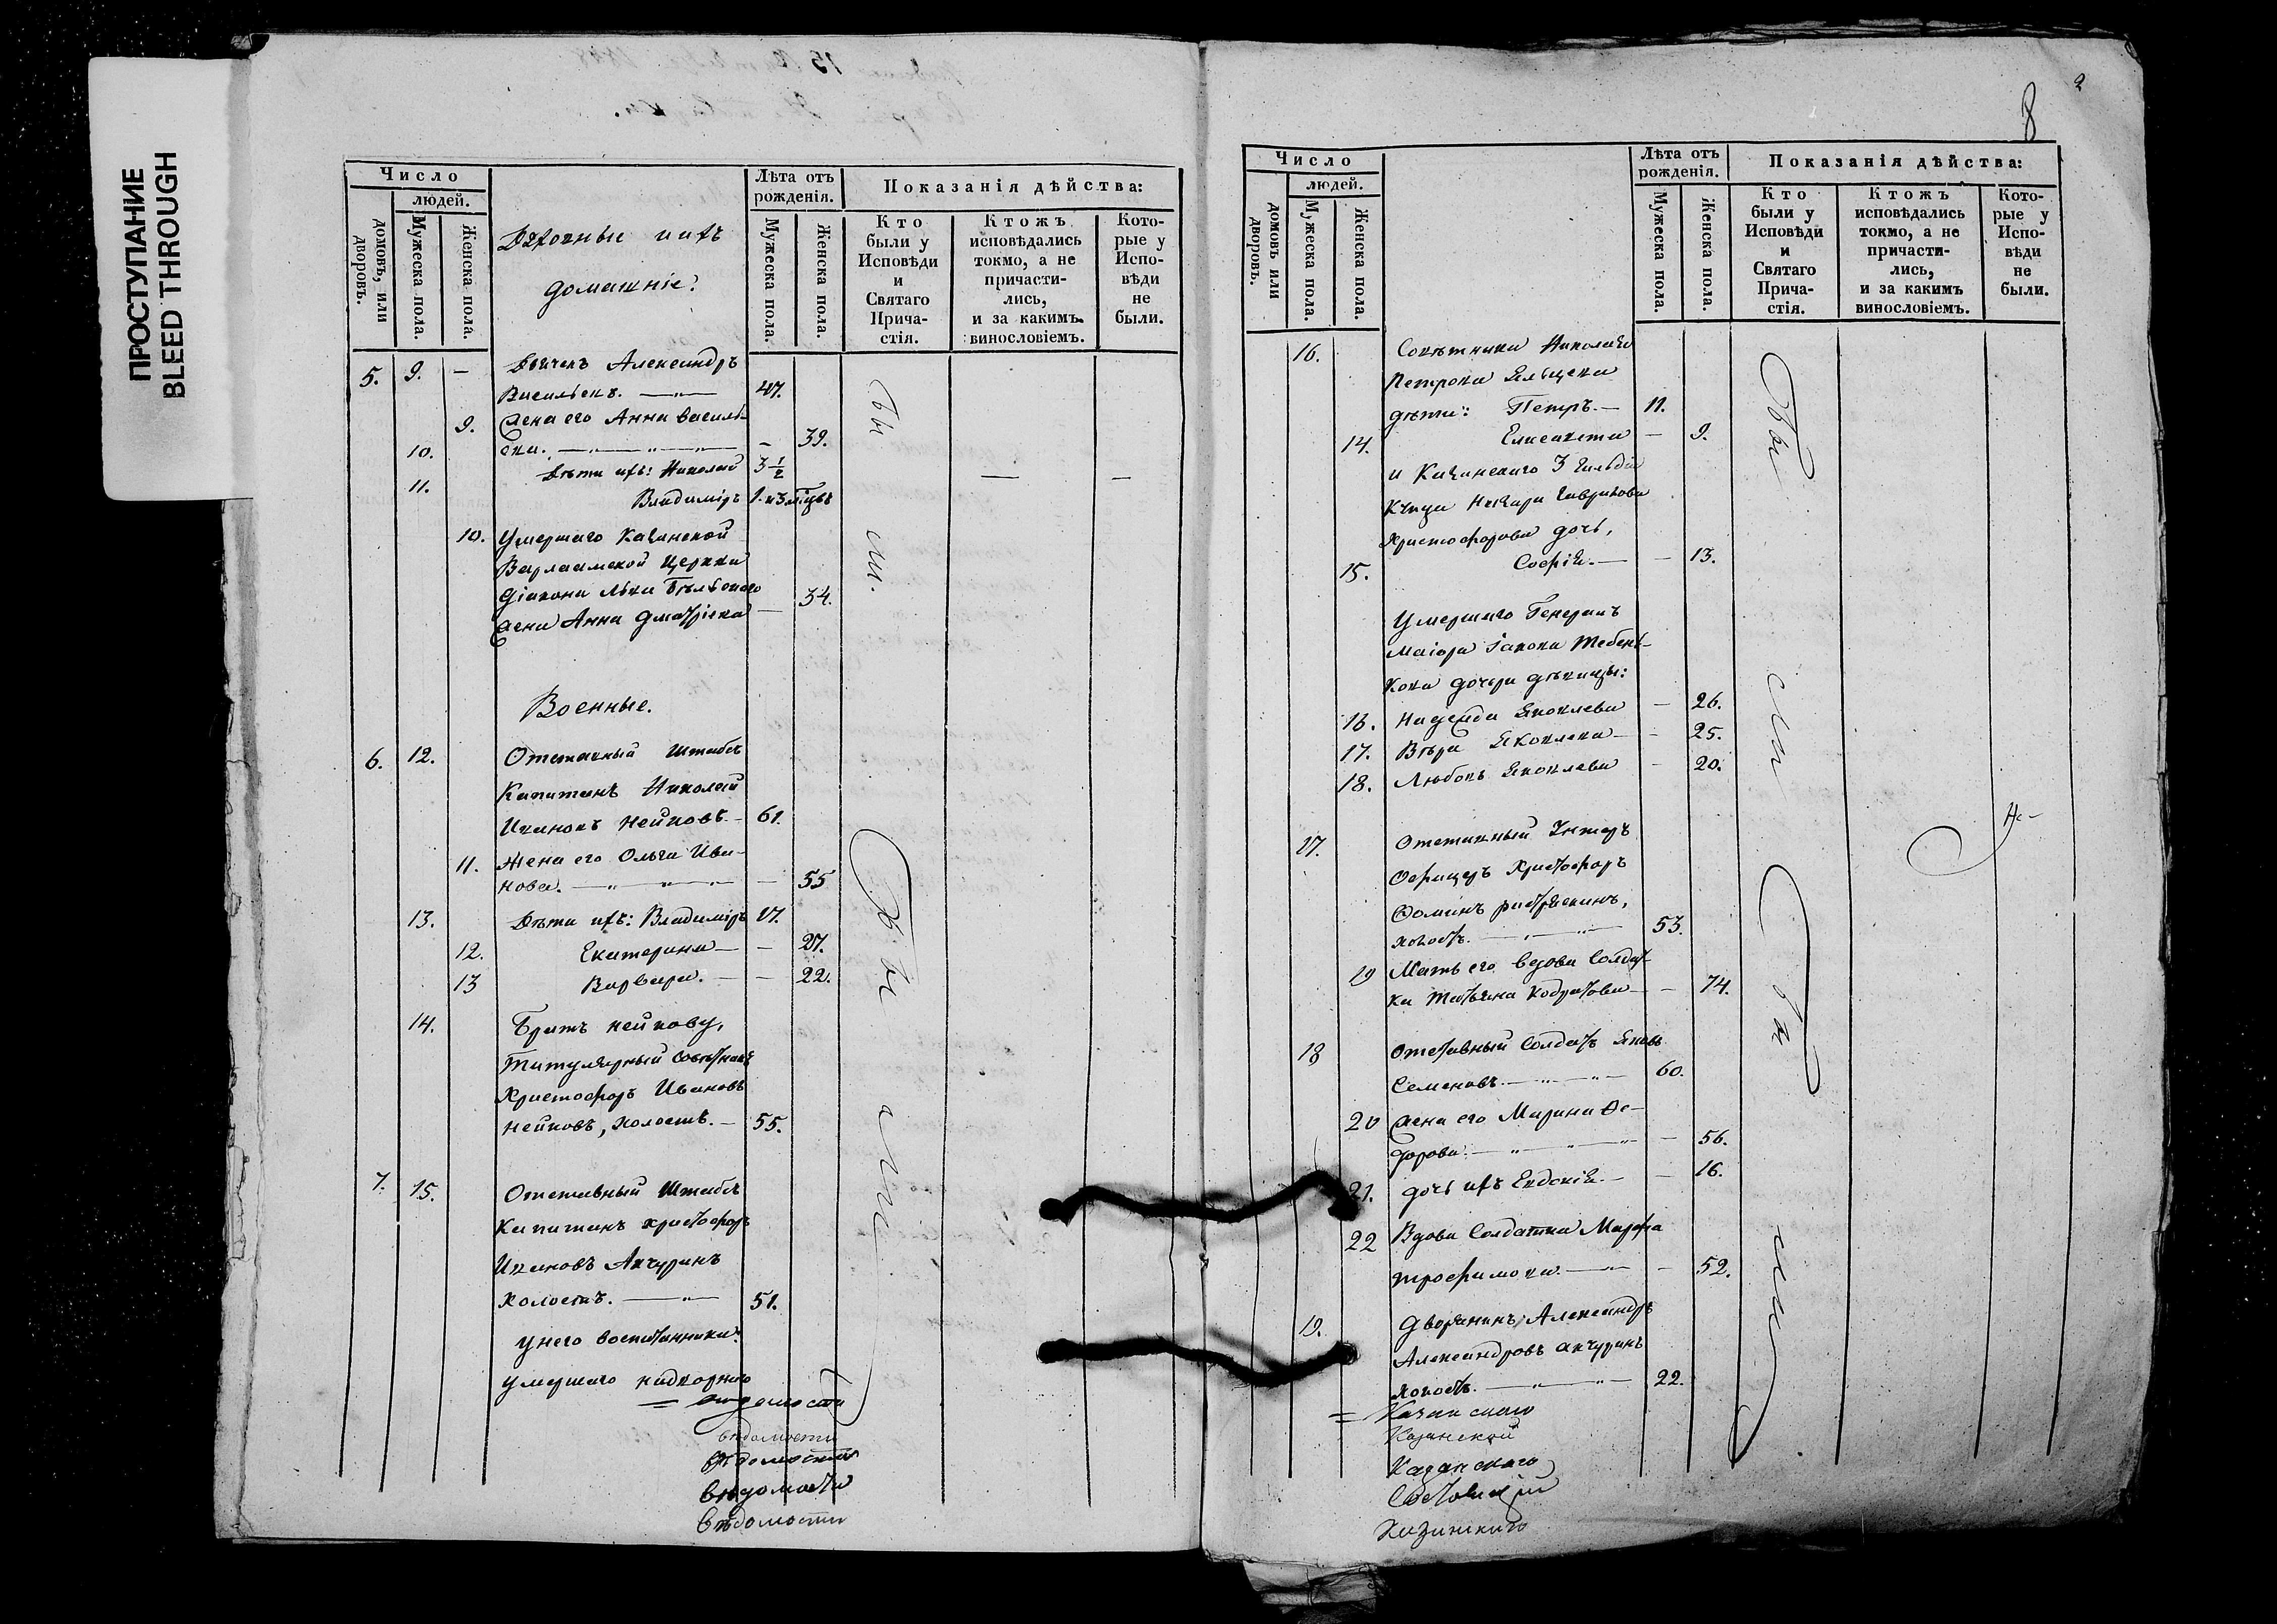 ПРОСТУПАНИЕ
BLEED THROUGH
Число
людей.
домовъ, или дворовъ.
Мужеска пола.
Женска пола.
Духовные и ихъ
домашніе.
Лѣта отъ рожденія.
Мужеска пола.
Женска пола.
Показанія дѣйства:
Кто были у Исповѣди и Святаго Причастія.
Ктожъ исповѣдались токмо, а не причастились, и за какимъ винословіемъ.
Которые у Исповѣди не были.
5. 9. — Дьячекъ Александръ
Васильевъ. — 47.
9. Жена его Анна Василь-
ева. — 39.
10. Дѣти ихъ: Николай 3 1/2
11. Владиміръ 1. и 3 мѣсцъ
10. Умершаго Казанской
Варлаамской Церкви
Діакона Льва Бѣльскаго
жена Анна Дмитріева — 34.
Были.
Военные.
6. 12. Отставный Штабсъ
Капитанъ Николай
Ивановъ Нейковъ — 61.
11. Жена его Ольга Ива-
нова. — 55
13. Дѣти ихъ: Владиміръ 17.
12. Екатерина — 27.
13 Варвара. — 22.
14. Братъ Нейкову,
Титулярный Совѣтникъ
Христофоръ Ивановъ
Нейковъ, холостъ. — 55.
7. 15. Отставный Штабсъ
Капитанъ Христофоръ
Ивановъ Акчуринъ
холостъ. — 51.
У него воспитанники:
умершаго надворнаго
Были
вѣдомости
вѣдомости
вѣдомости
вѣдомости
вѣдомости
8
2
Число
людей.
домовъ или дворовъ.
Мужеска пола.
Женска пола.
Лѣта отъ рожденія.
Мужеска пола.
Женска пола.
Показанія дѣйства:
Кто были у Исповѣди и Святаго Причастія.
Ктожъ исповѣдались токмо, а не причастились, и за какимъ винословіемъ.
Которые у Исповѣди не были.
16. Совѣтника Николая
Петрова
дѣти: Петръ. — 11.
14. Елисавета — 9.
и Казанскаго 3 Гильдіи
Купца
Христофорова дочь,
15. Софія. — 13.
Умершаго Генералъ
Маіора Іакова Тебень-
кова дочери дѣвицы:
16. Надежда Яковлева — 26.
17. Вѣра Яковлева — 25.
18. Любовь Яковлева — 20.
Были
17. Отставный Унтеръ
Офицеръ Христофоръ
холостъ. — 53.
19 Мать его вдова Солдат-
ка Татьяна — 74.
Не-
18 Отставный Солдатъ Яковъ
Семеновъ. — 60.
20 жена его Марина Ѳе-
дорова. — 56.
21. дочь ихъ Евдокія. — 16.
22 Вдова Солдатка Марфа
Трофимова. — 52.
19. Дворянинъ Александръ
Александровъ Акчуринъ
холостъ. — 22.
Были
Казанскаго
Казанской
Казанскаго
Состоящій
Казанскаго